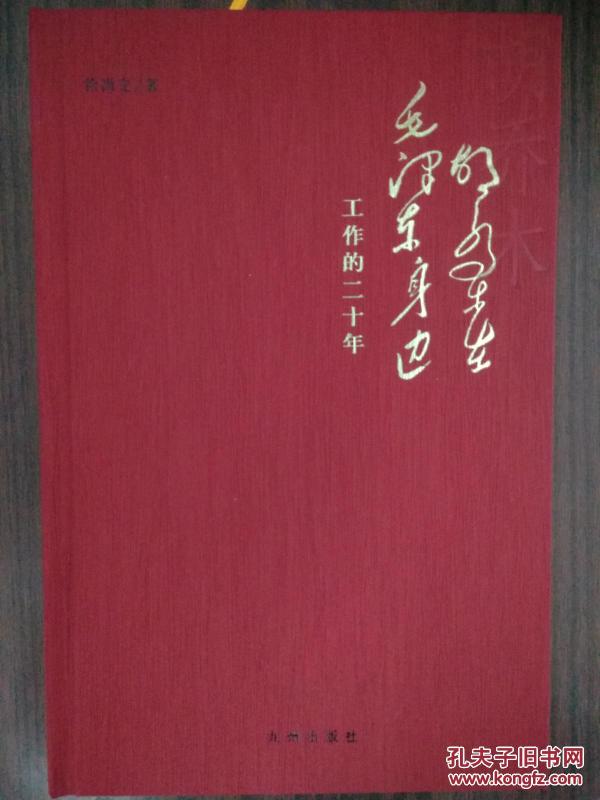 徐海文/著
胡乔木
胡乔木在
毛泽东身边
工作的二十年
九州出版社
孔夫子旧书网
www.kongfz.com